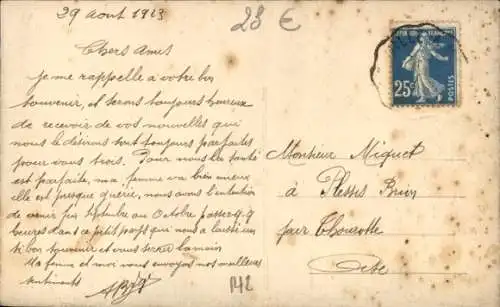 29 aout 1923
23 €
Chers Amis
je me rappelle à votre bon
souvenir, et serons toujours heureux
de recevoir de vos nouvelles qui
nous le désirons sont toujours parfaites
pour vous trois. Pour nous la santé
est parfaite, ma femme va bien mieux
elle est presque guérie, nous avons l'intention
de venir fin septembre ou Octobre passer qq
heures dans ce petit pays qui nous a laissé un
si bon souvenir et vous serrer la main
Ma femme et moi vous envoyons nos meilleurs
sentiments
REPUBLIQUE FRANÇAISE
25c
POSTES
Monsieur Miquet
à Plessis Brion
par Thourotte
Oise
142